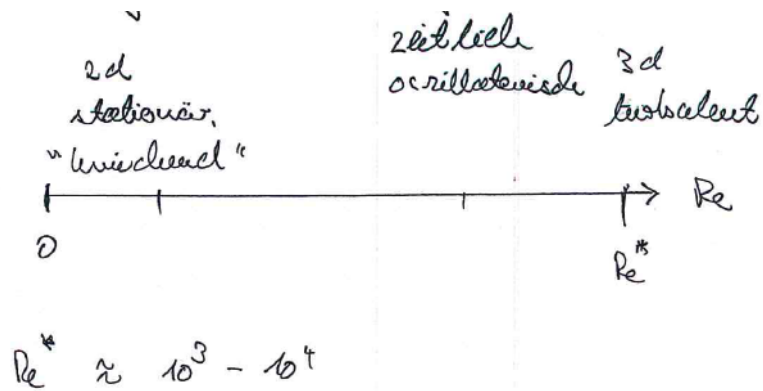 2d
stationär,
"kriechend"
zeitlich
oszillatorisch
3d
turbulent
Re
0
Re*
Re* ≈ 10³ - 10⁴